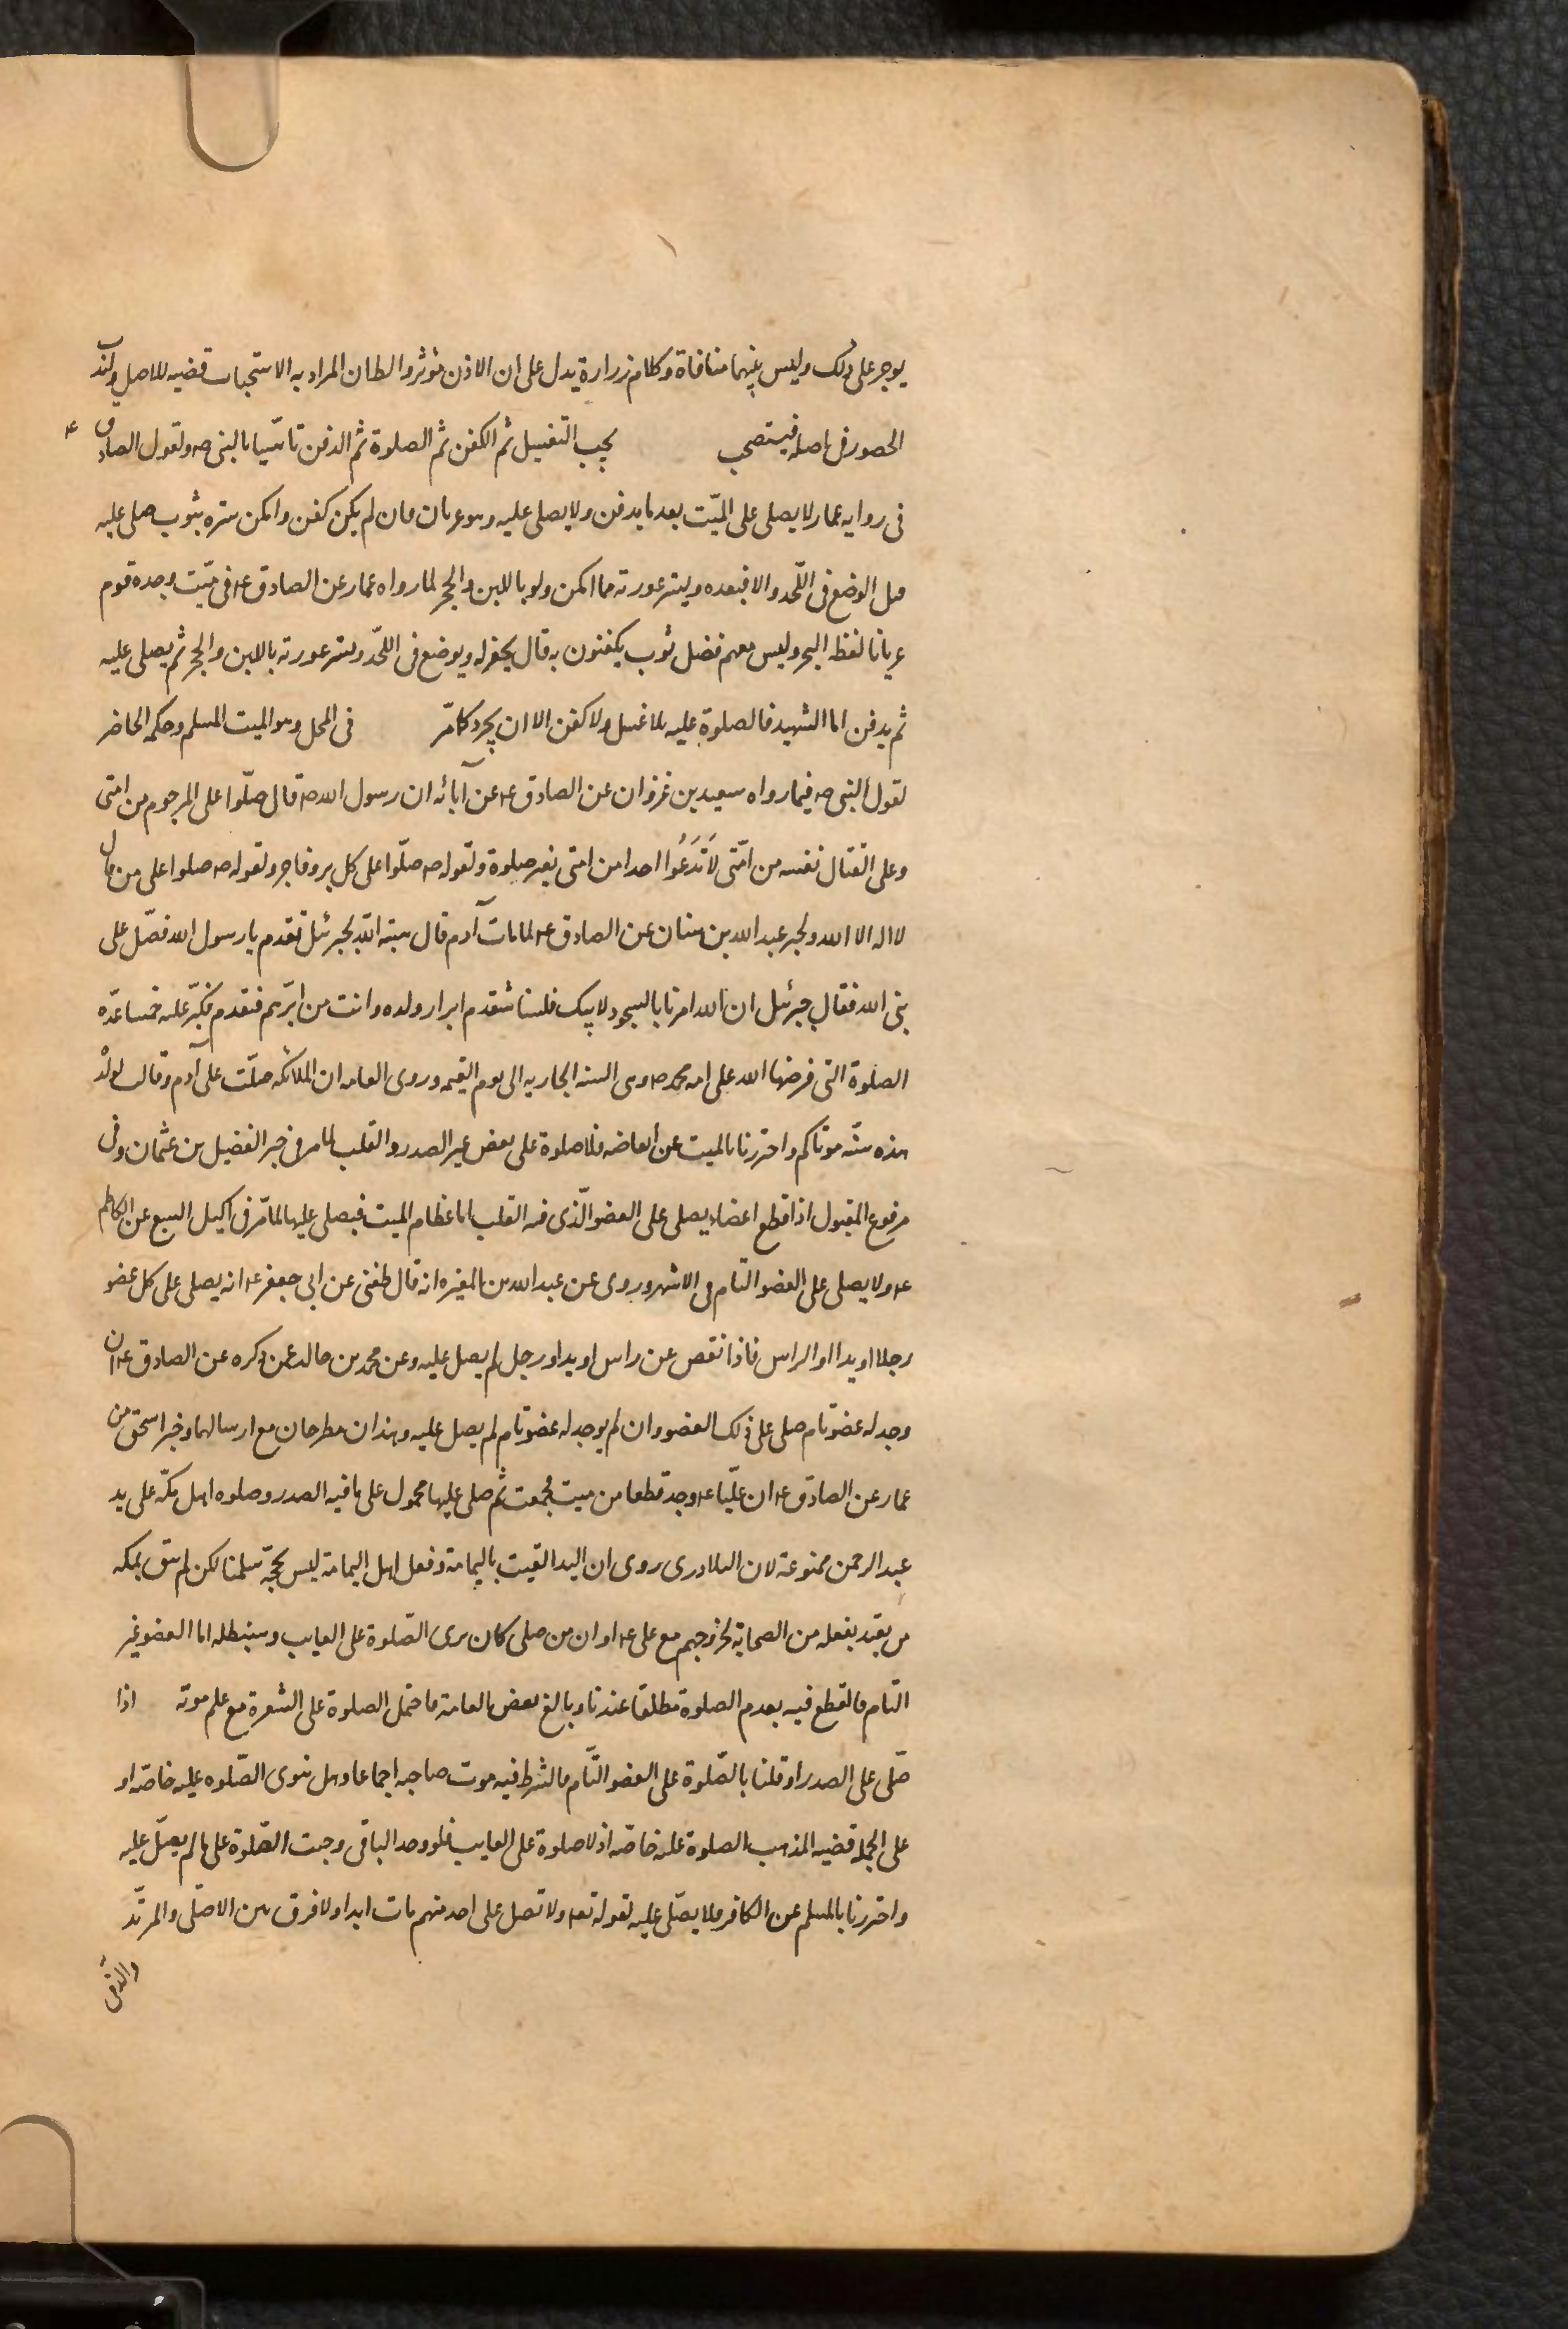 يوجر على ذلك وليس بينهما منافاة وكلام زرارة يدل على ان الاذن مؤثر والظان المراد به الاستحباب قضيه للاصل ولندب
الحضور في اصله فيستصحب يجب التغسيل ثم الكفن ثم الصلوة ثم الدفن تاسّيا بالنبي صه ولقول الصادق ع
في روايه عمار لا يصلى على الميّت بعد ما يدفن ولا يصلى عليه وهو عريان فان لم يكن كفن وامكن ستره بثوب صلى عليه
قبل الوضع في اللّحد والا فبعده ويستر عورته مما امكن ولو باللبن والحجر لما رواه عمار عن الصادق ع في ميّت وجده قوم
عريانا لفظه البحر وليس معهم فضل ثوب يكفنون به قال يحفر له ويوضع في اللحّد ويستر عورته باللبن والحجر ثم يصلى عليه
ثم يدفن اما الشهيد فالصلوة عليه بلا غسل ولا كفن الا ان يجرد كما مّر في المحل وهو الميت المسلم وحكم الحاضر
لقول النبي صه فيما رواه سعيد بن غزوان عن الصادق ع عن آبائه ان رسول الله صه قال صلّوا على المرجوم من امتى
وعلى القتال نفسه من امّتى لَا تَدَعُوا احدا من امتى بغير صلوة ولقوله صه صلّوا على كل بر وفاجر ولقوله صه صلوا على من قال
لا اله الا الله ولخبر عبد الله بن سنان عن الصادق ع لما مات آدم قال هبة الله لجبرئيل تقدم يا رسول الله فصّل على
نبى الله فقال جبرئيل ان الله امرنا بالسجود لابيك فلسنا نتقدم ابرار ولده وانت من ابرّهم فتقدم فكبّر عليه خمسا عدّة
الصلوة التي فرضها الله على امه محمد صه وهى السنه الجاريه الى يوم القيمه وروى العامه ان الملائكه صلّت على آدم وقالت لولده
هذه سنّه موتاكم واحترزنا بالميت عن ابعاضه فلا صلوة على بعض غير الصدر والقلب لما مر في خبر الفضيل بن عثمان وفى
مرفوع المقبول اذا قطع اعضاء يصلى على العضو الّذى فيه القلب اما عظام الميت فيصلى عليها لما مّر في اكيل السبع عن الكاظم
ع ولا يصلى على العضو التام في الاشهر وروى عن عبد الله بن المغيره انه قال بلغنى عن ابى جعفر ع انه يصلى على كل عضو
رجلا او يدا او الراس فاذا نقص عن راس او يد او رجل لم يصل عليه وعن محمد بن خالد عمن ذكره عن الصادق ع ان
وجد له عضو تام صلى على ذلك العضو وان لم يوجد له عضو تام لم يصل عليه وهذان مطرحان مع ارسالهما وخبر اسحق من
عمار عن الصادق ع ان عليّا ع وجد قطعا من ميت فجمعت ثم صلى عليها محمول على ما فيه الصدر وصلوه اهل مكّه على يد
عبد الرحمن ممنوعة لان البلادرى روى ان اليد القيت باليمامة وفعل اهل اليمامة ليس بحجّة سلمنا لكن لم يبق بمكه
من يقتد بفعله من الصحابة لخروجهم مع على ع او ان من صلى كان يرى الصّلوة على الغايب وسنبطله اما العضو غير
التام فالقطع فيه بعدم الصلوة مطلقا عندنا وبالغ بعض العامة فاحتمل الصلوة على الشعرة مع علم موته اذا
صّلى على الصدر او قلنا بالصّلوة على العضو التّام فالشرط فيه موت صاحبه اجماعا وهل ينوى الصّلوه عليه خاصّه او
على الجمله قضيه المذهب الصلوة عليه خاصّه اذ لا صلوة على الغايب فلو وجد الباقى وجبت الصّلوة على ما لم يصّل عليه
واحترزنا بالمسلم عن الكافر فلا يصّلى عليه لقوله تعه ولا تصل على احد منهم مات ابدا ولا فرق بين الاصّلى والمرتّد
والذمّى